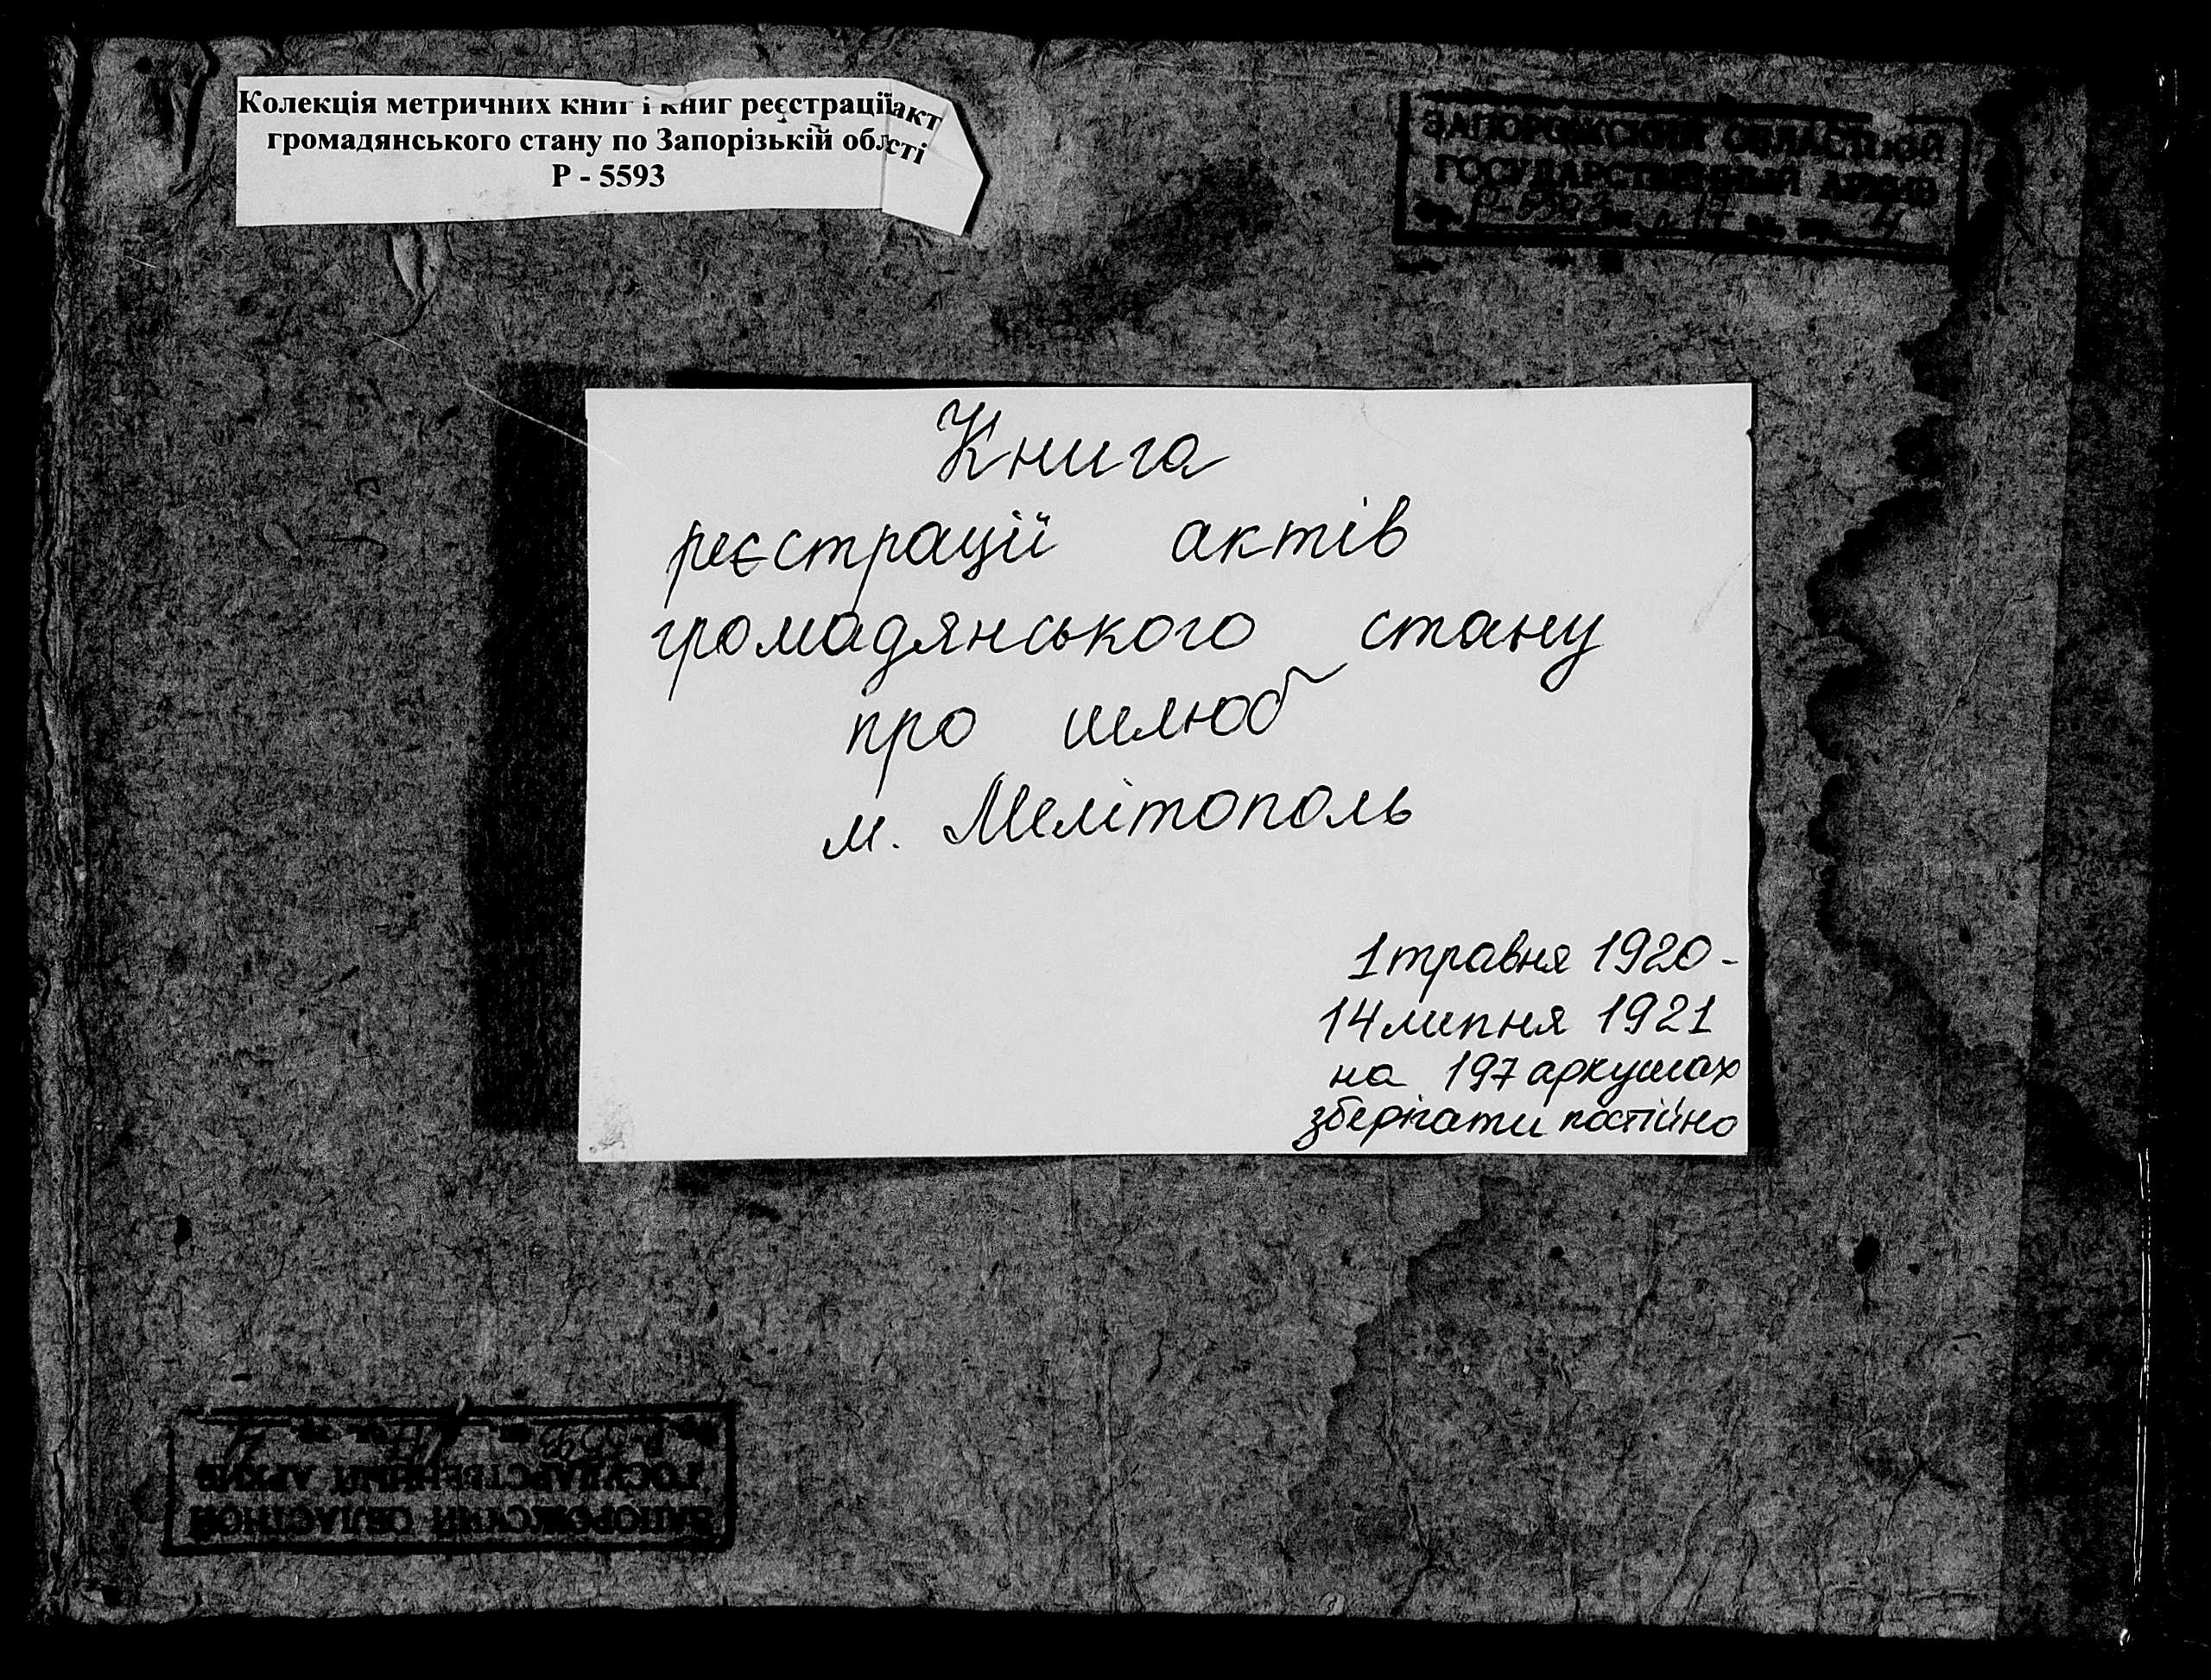 Колекція метричних книг і книг реєстрації акт
громадянського стану по Запорізькій області
Р - 5593
ЗАПОРОЖСКИЙ ОБЛАСТНОЙ
ГОСУДАРСТВЕННЫЙ АРХИВ
Книга
реєстрацій актів
громадянського стану
про шлюб
м. Мелітополь
1 травня 1920 -
14 липня 1921
на 197 аркушах
зберігати постійно
ГОСУДАРСТВЕННЫЙ АРХИВ
ЗАПОРОЖСКИЙ ОБЛАСТНОЙ